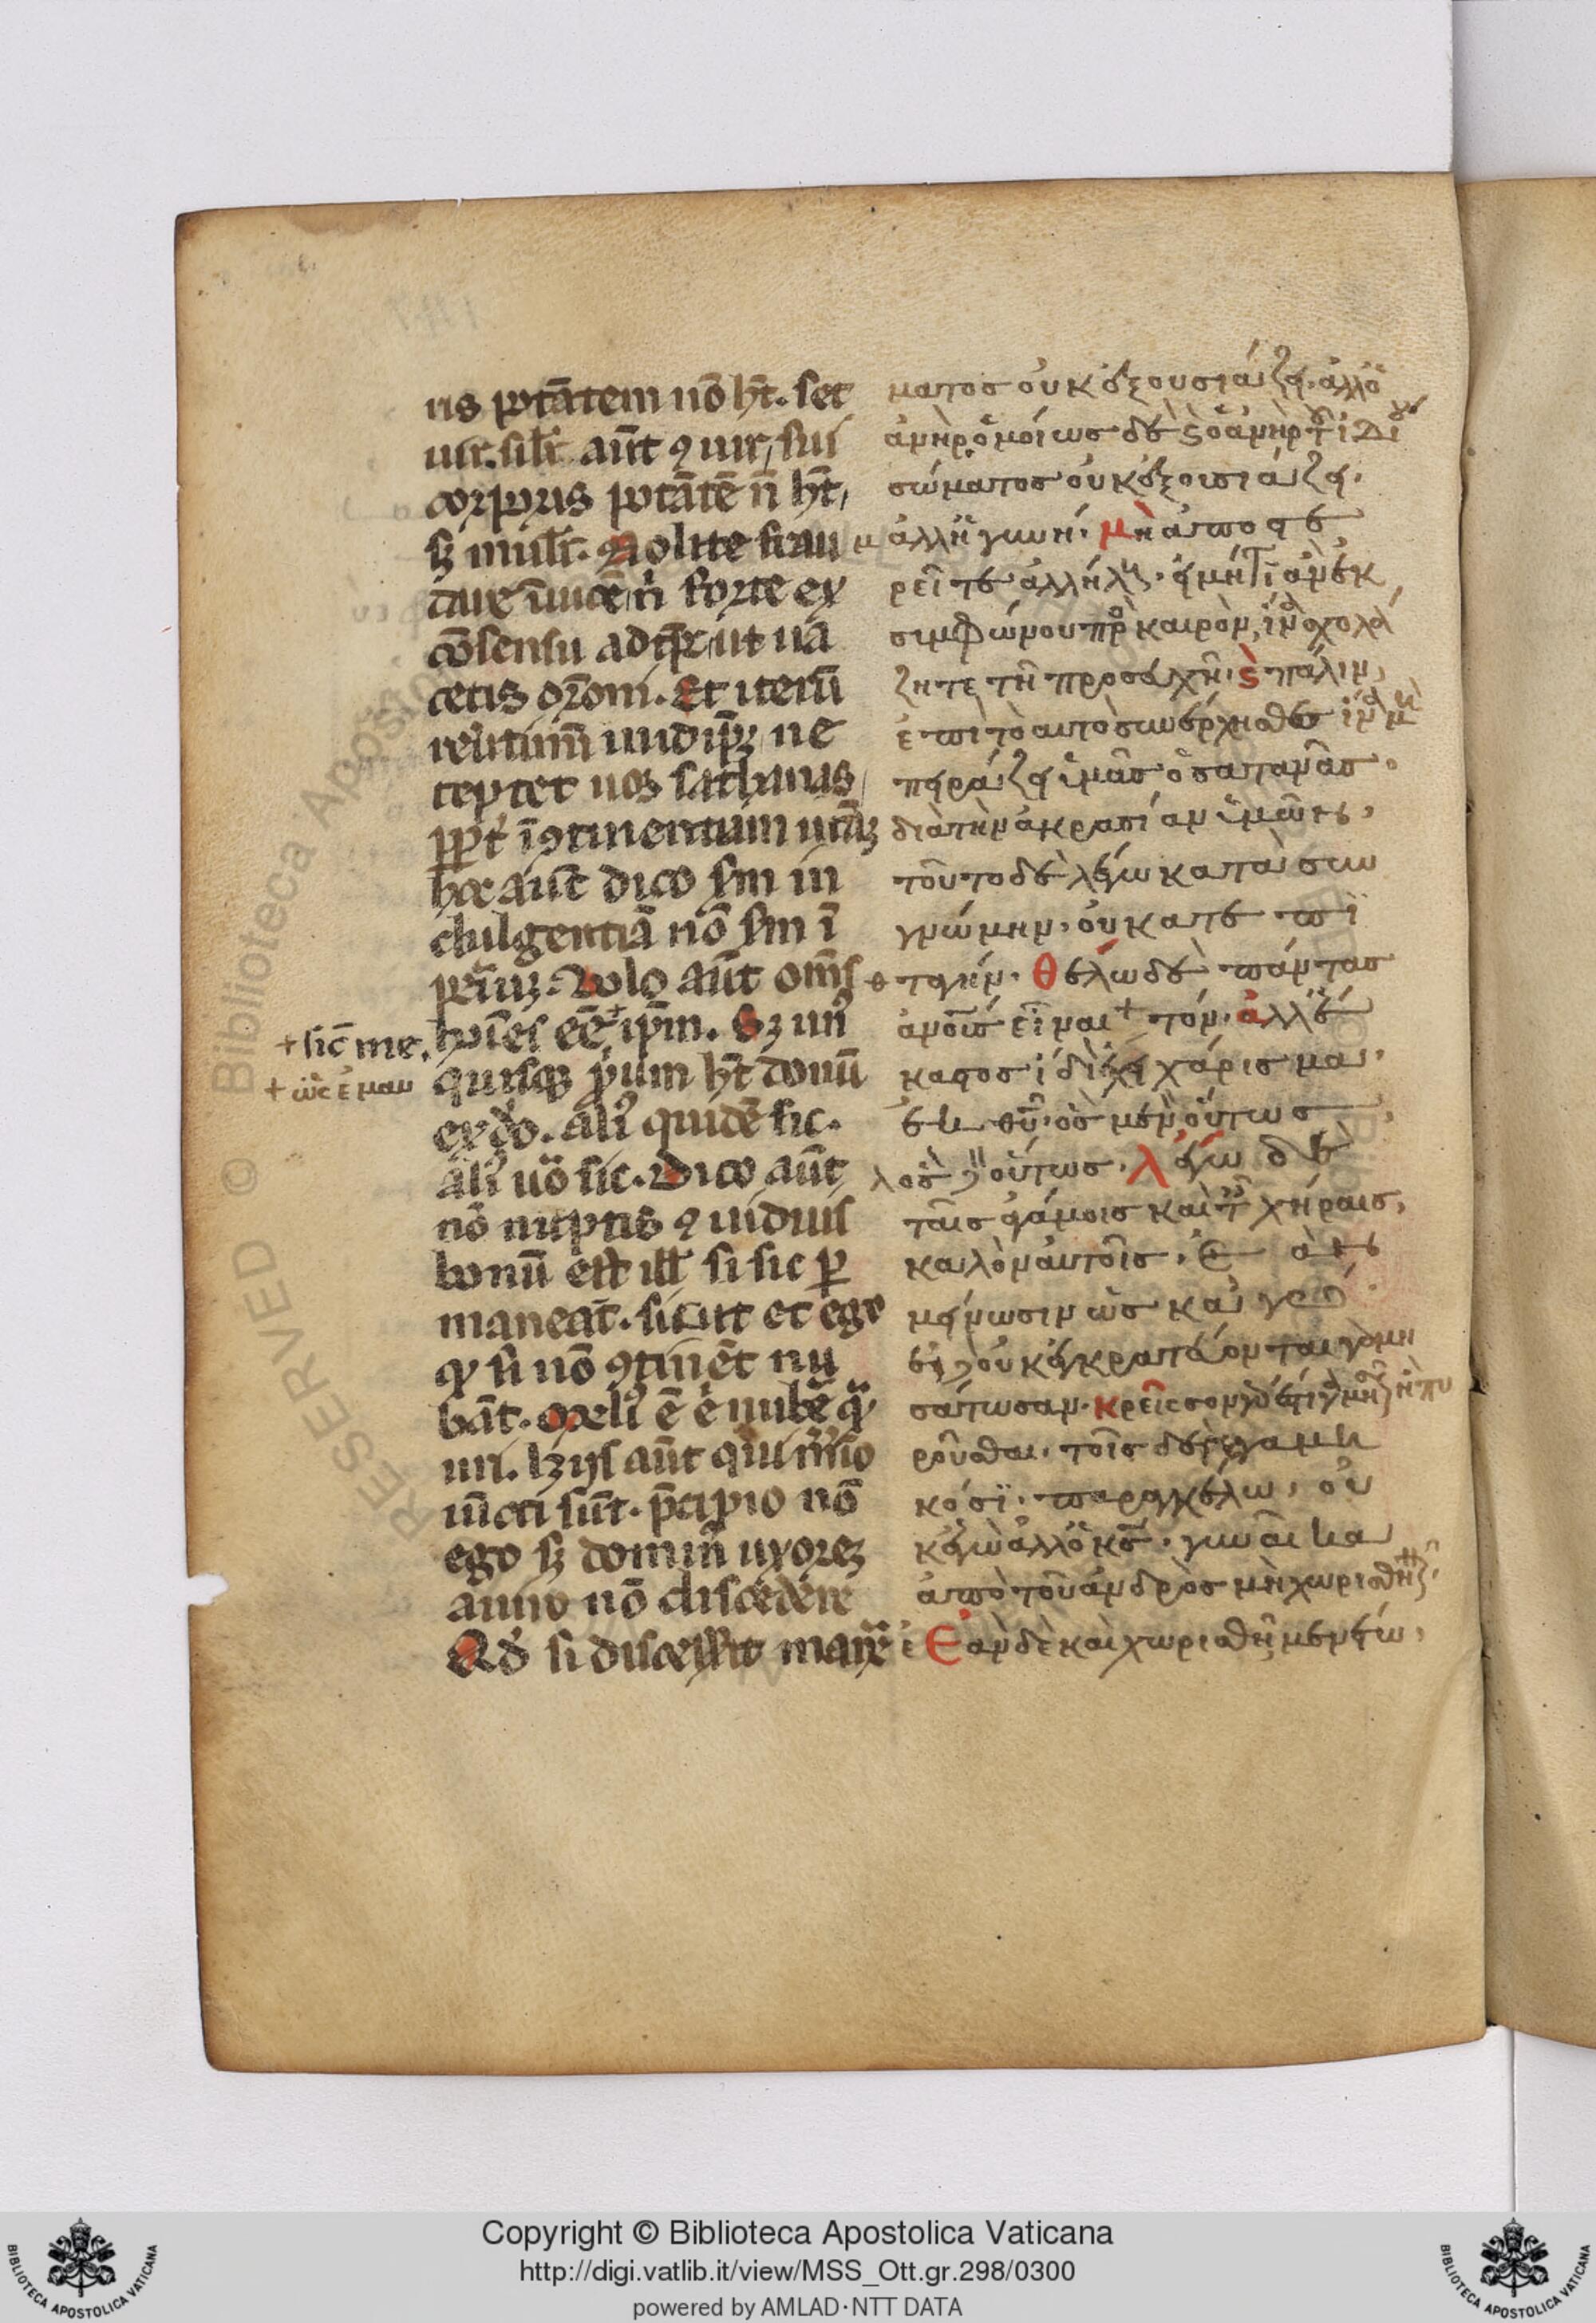 ris ptātem nō hт̄. set
uir. silr̄ aūt ꝯ uir, sui
corporis ptātē n̄ hт̄,
sꝫ mulr̄. Nolite frau
dare īuicē n̄ forte ex
cōsensu ad tp̄r ut ua
cetis orōni. Et iterū
reūtim̄ in id ip̄ꝫ, ne
teptet uos sathanas,
ꝓpt̄ īꝯtinentiam urāꝫ
hoc aūt dico sm̄ in
dulgentiā nō sm̄ ī
periuꝫ. Uolo aūt om̄s
hoīes eē + ip̄m. Sꝫ un̄
quisqꝫ ꝓrium hт̄ donū
ex dō. ali' quidē sic.
ali' uō sic. Dico aūt
nō nuptis ꝯ uiduis
bonū est ill̄ si sic ꝑ
maneāt. sicut et ego
ꝙ si nō ꝯtinēt nu
bāt. Meli' ē ē nubē ꝙ̄
uri. hꝫ ijs aūt qui mr̄īo
iūcti sūt. p̄cipio nō
ego sꝫ domin̄ uxorēꝫ
a uiro nō discedere
Qd̄ si discesserit manē
+ sic̄ me.
+ ὡς ἐμαυ
ματος οὐκ ἐξουσιάζει. ἀλλ ὁ
ἀνὴρ ὁμοίως δὲ ϛ ὁ ἀνὴρ τοῦ ἰδίου
σώματος οὐκ ἐξουσιάζει.
ἀλλ ἡ γυνή. μὴ ἀποστε
ρεῖτε ἀλλήλους. εἰ μή τι ἂν ἐκ
συμφώνου πρὸς καιρὸν, ἵνα σχολά
ζητε τῆ προσευχῆ. ϛ πάλιν
ἐπὶ τὸ αυτὸ συνέρχησθε ἵνα μὴ
πειράζει ὑμᾶς ὁ σατανᾶς.
διὰ τὴν ἀκρασίαν ὑμῶν.
τοῦτο δὲ λέγω κατὰ συγ
γνώμην. οὐ κατ ἐπι
ταγήν. θέλω δὲ πάντας
ἀνους εἶναι + τόν. ἀλλ ἕ
καστος ἴδιον ἔχει χάρισμα.
ἐκ θυ. ὃς μὲν οὕτως
ὃς δὲ οὕτως. λέγω δὲ
τοῖς ἀγάμοις καὶ τ χήραις.
καλὸν αυτοῖς. ἐὰν
μείνωσιν ὡς καγώ.
εἰ δὲ οὐκ ἐγκρατεύονται γαμη
σάτωσαν. κρεῖσσον γάρ ἐστι γαμῆσαι ἢ πυ
ροῦσθαι. τοῖς δὲ γεγαμη
κόσι. παραγγέλω. οὐ
κ ἐγὼ ἀλλ ὁ κς. γυναῖκα
ἀπὸ τοῦ ἀνδρὸς μὴ χωρισθῆναι.
Ἐὰν δὲ καὶ χωρισθῆ μενέτω.
Copyright © Biblioteca Apostolica Vaticana
http://digi.vatlib.it/view/MSS_Ott.gr.298/0300
powered by AMLAD·NTT DATA